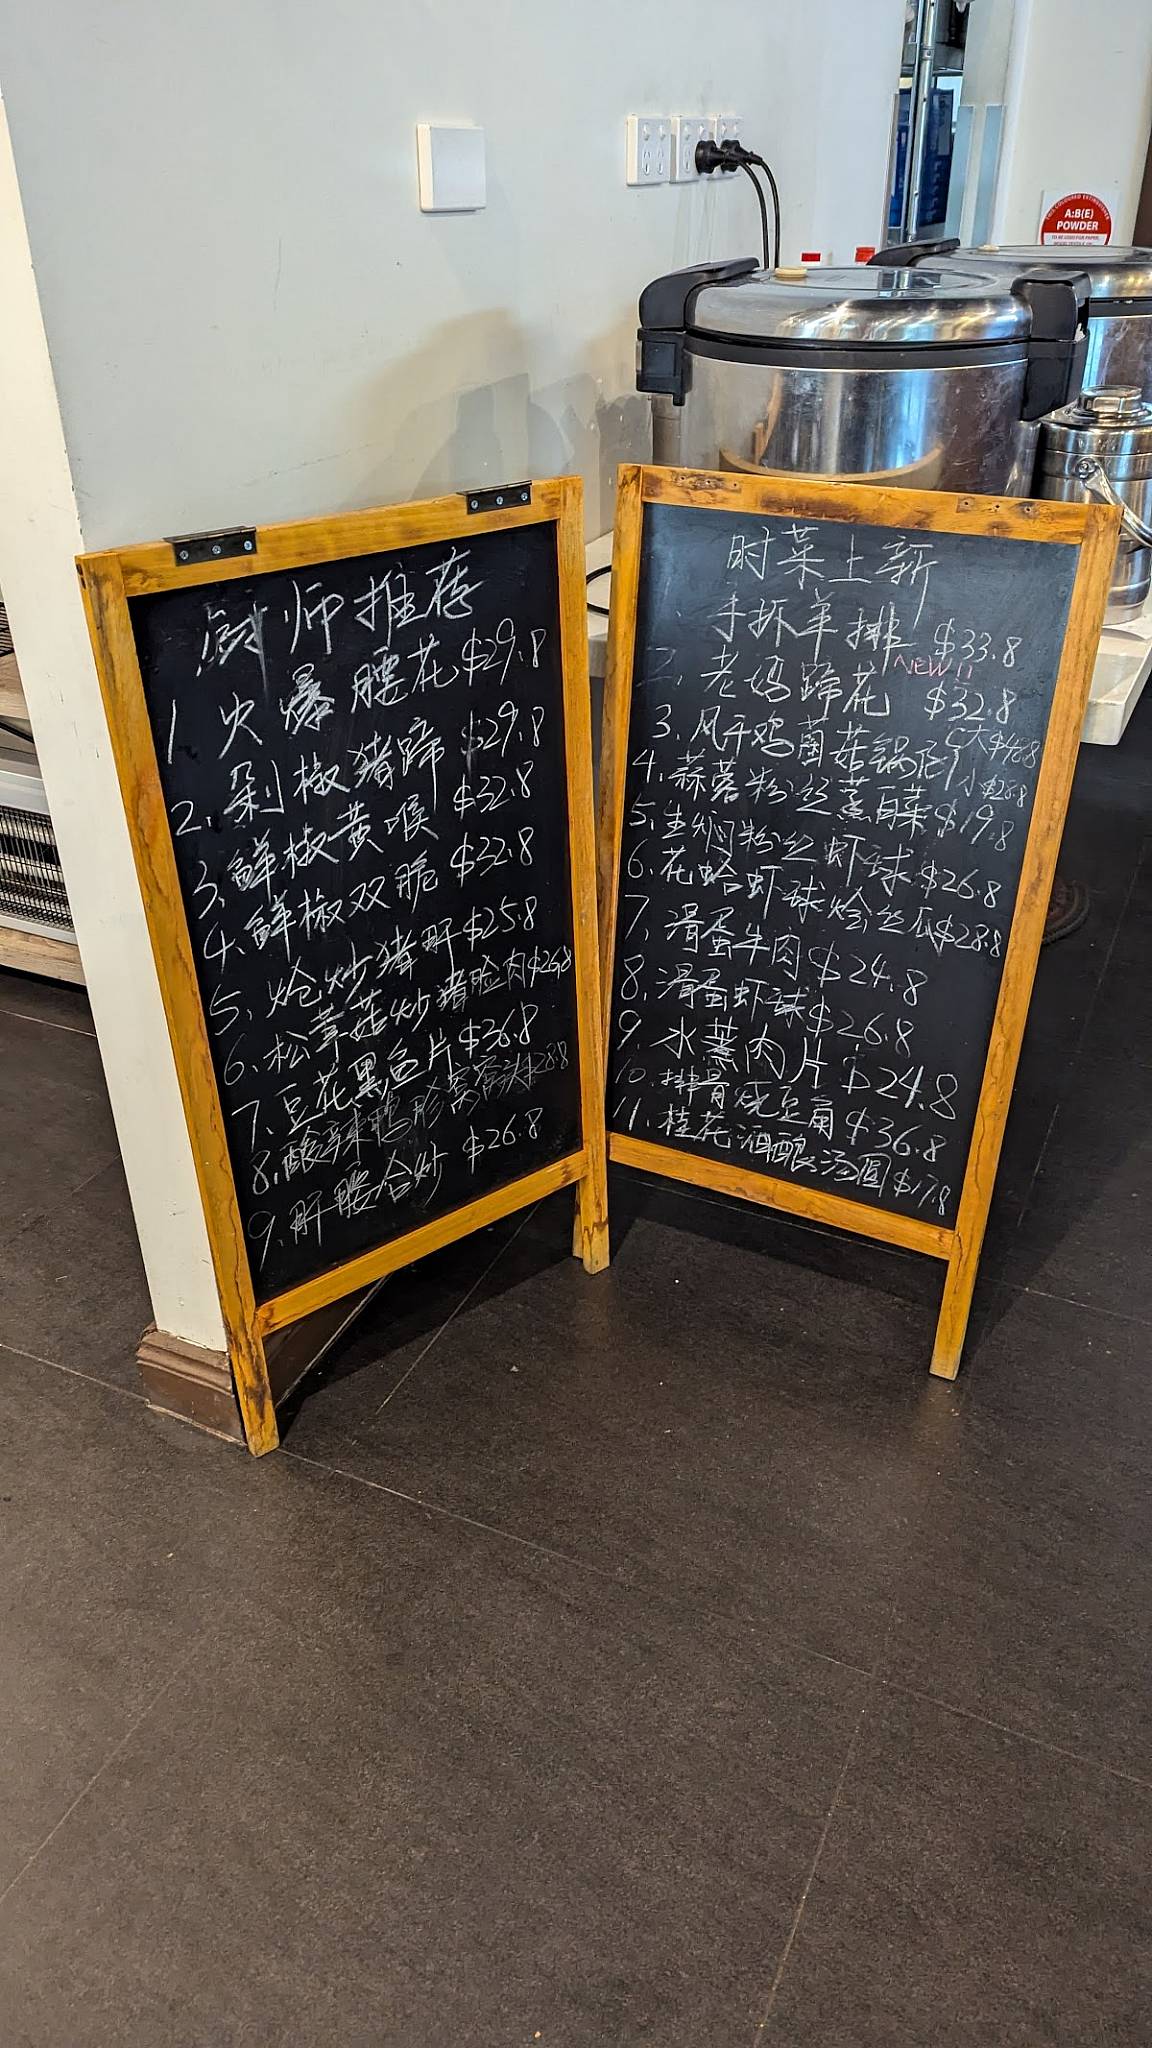 厨师推荐
1 火爆腰花 $29.8
2. 剁椒猪蹄 $29.8
3. 鲜椒黄喉 $32.8
4. 鲜椒双脆 $32.8
5. 炝炒猪肝 $25.8
6. 松茸菇炒猪脸肉 $26.8
7. 豆花黑鱼片 $36.8
8. 酸辣鸭胗窝窝头 $28.8
9. 肝腰合炒 $26.8
时菜上新
手拆羊排 $33.8
NEW!!
2. 老妈蹄花 $32.8
3. 风干鸡菌菇锅仔 大$48.8
小$28.8
4. 蒜蓉粉丝蒸百菜 $19.8
5. 生焖粉丝虾球 $26.8
6. 花蛤虾球烩丝瓜 $28.8
7. 滑蛋牛肉 $24.8
8. 滑蛋虾球 $26.8
9. 水蒸肉片 $24.8
10. 排骨烧豆角 $36.8
11. 桂花酒酿汤圆 $17.8
A:B(E)
POWDER